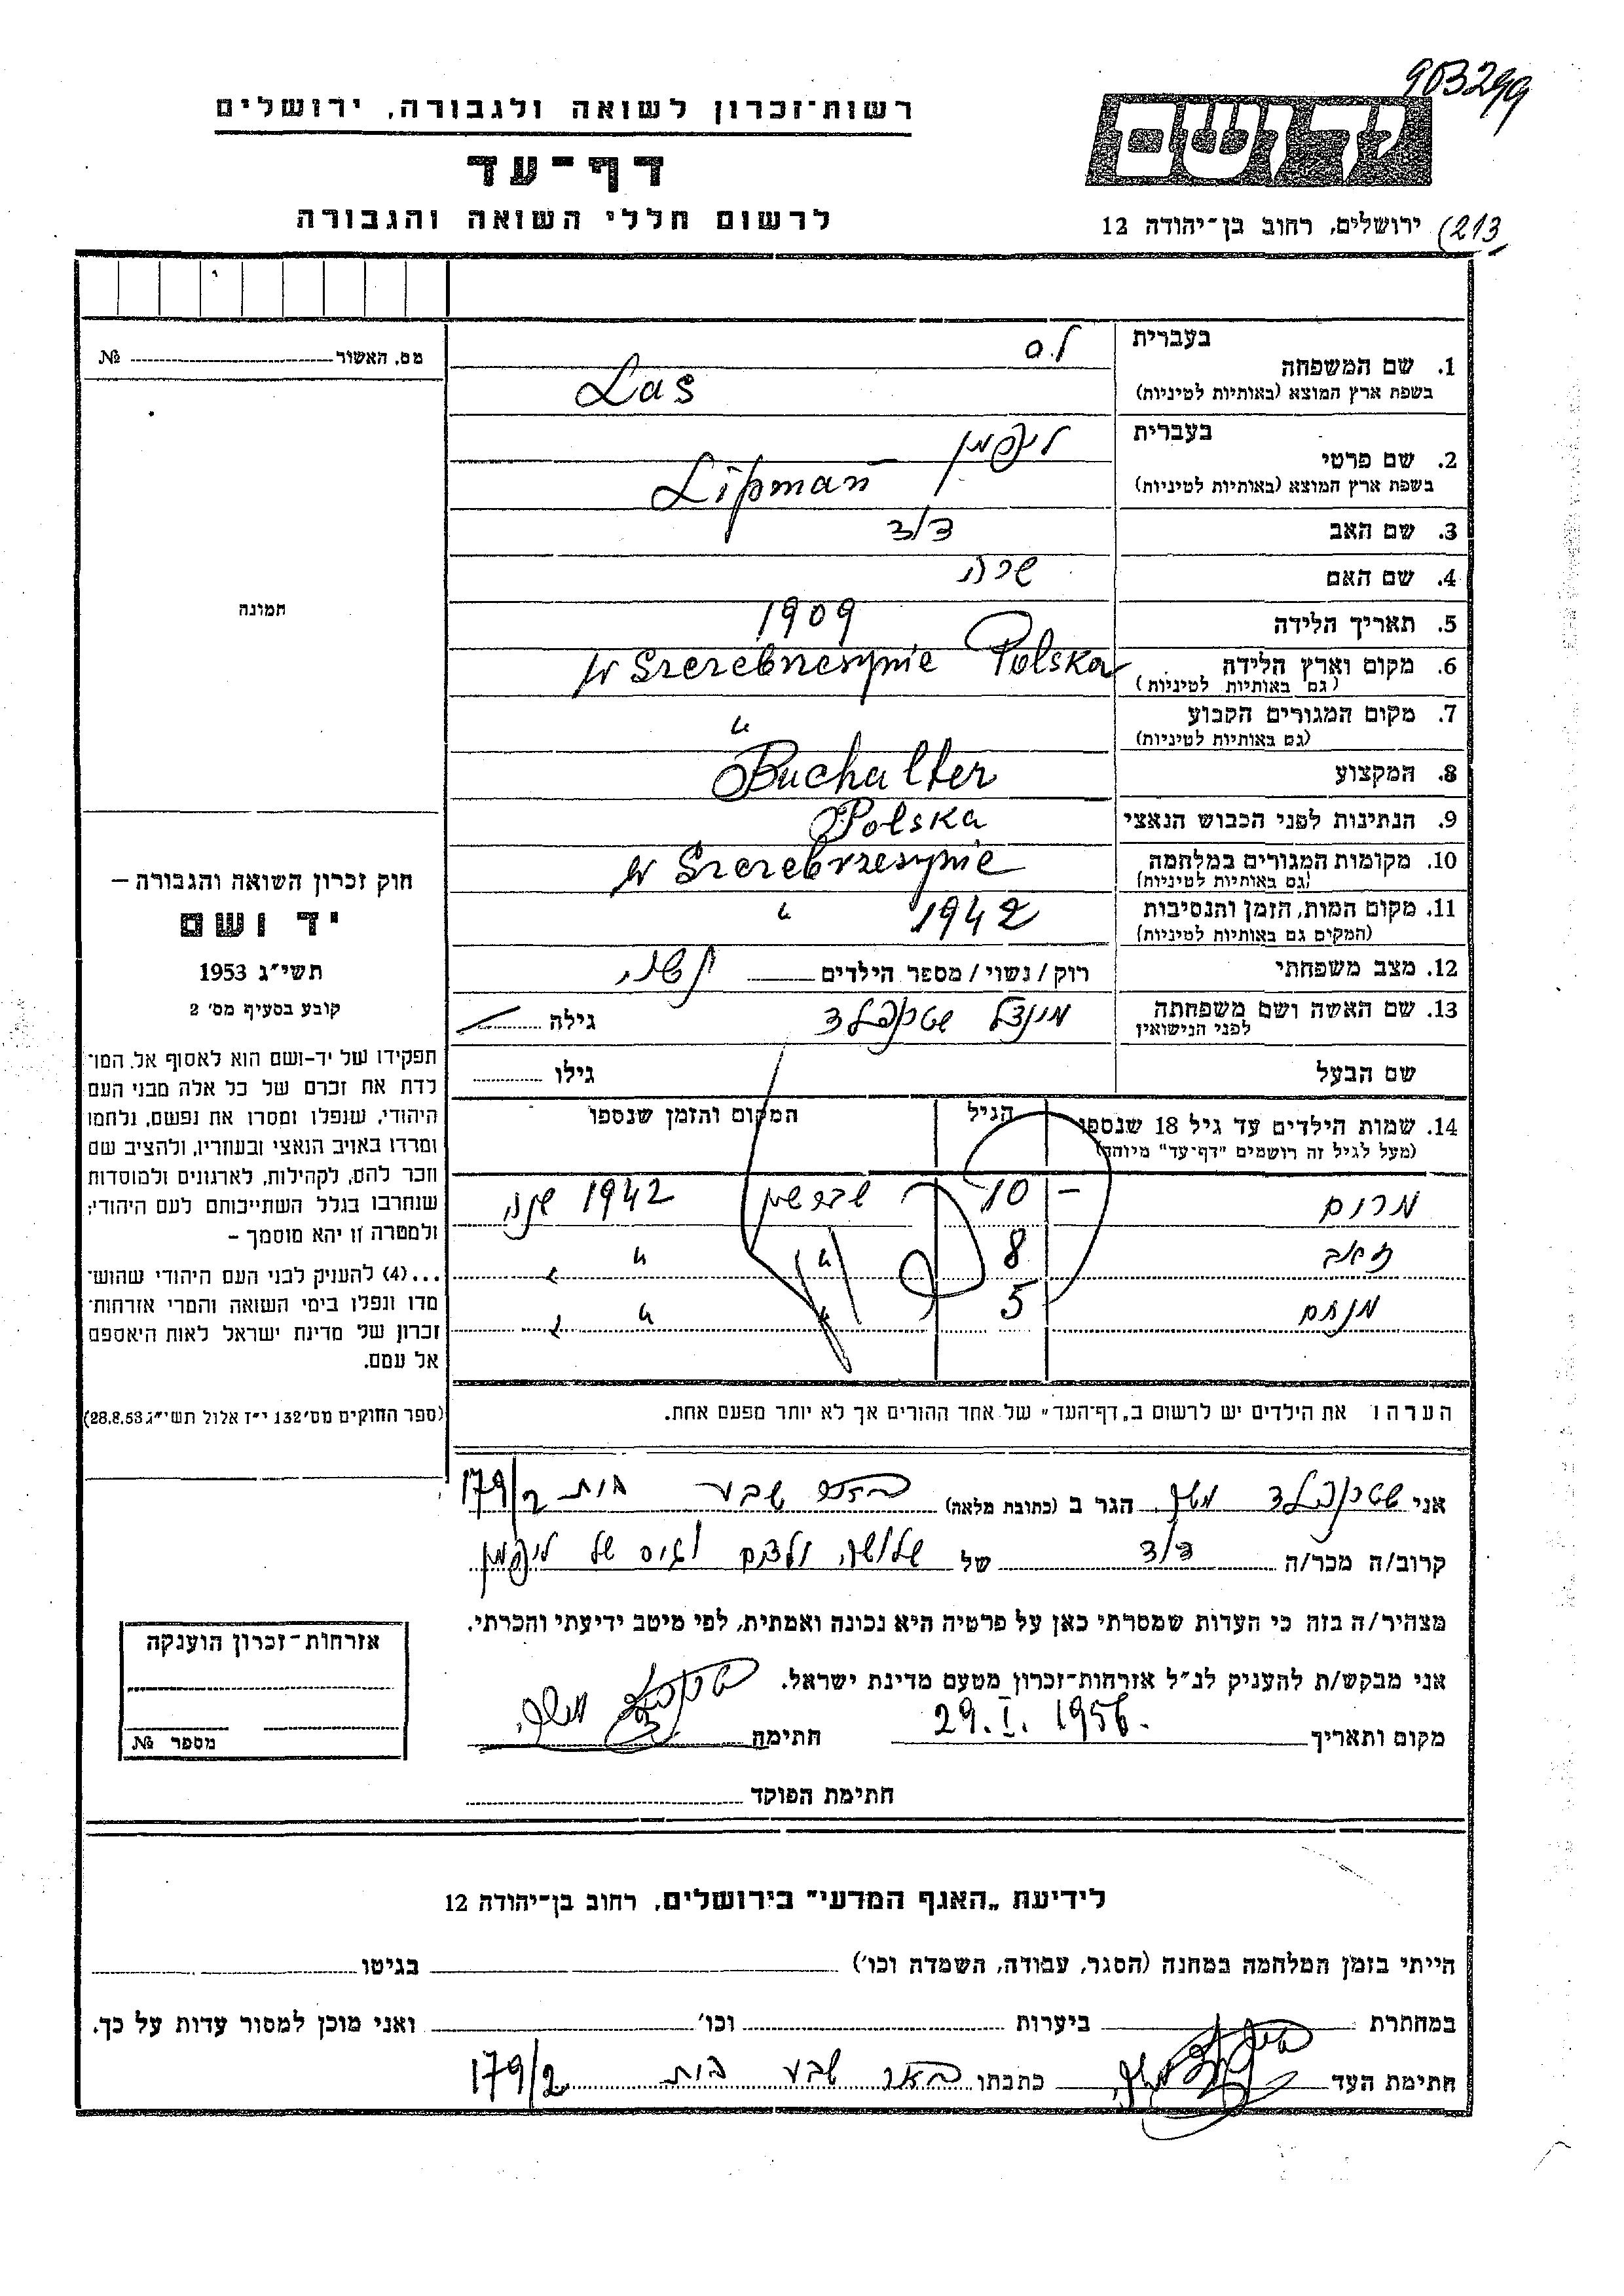 903299
רשות־זכרון לשואה ולגבורה, ירושלים
דף־עד
לרשום חללי השואה והגבורה
יד ושם
ירושלים, רחוב בן־יהודה 12
(213
מס. האשור № 
1. שם המשפחה
בעברית לס
בשפת ארץ המוצא (באותיות לטיניות) Las
2. שם פרטי
בעברית ליפמן
בשפת ארץ המוצא (באותיות לטיניות) Lipman
3. שם האב דוד
4. שם האם שרה
5. תאריך הלידה 1909
6. מקום וארץ הלידה (גם באותיות לטיניות) w Szczebrzeszynie Polska
7. מקום המגורים הקבוע (גם באותיות לטיניות) "
8. המקצוע Buchalter
9. הנתינות לפני הכבוש הנאצי Polska
10. מקומות המגורים במלחמה (גם באותיות לטיניות)
11. מקום המות, הזמן והנסיבות (המקום גם באותיות לטיניות) 1942 "
12. מצב משפחתי רוק / נשוי / מספר הילדים
13. שם האשה ושם משפחתה לפני הנישואין גילה
שם הבעל גילו
14. שמות הילדים עד גיל 18 שנספו
(מעל לגיל זה רושמים "דף־עד" מיוחד)
הגיל
המקום והזמן שנספו
מרים – 10 1942
זאב 8 " " "
מנחם 5 " " "
הערה: את הילדים יש לרשום ב„דף־העד" של אחד ההורים אך לא יותר מפעם אחת.
תמונה
חוק זכרון השואה והגבורה –
יד ושם
תשי"ג 1953
קובע בסעיף מס' 2
תפקידו של יד-ושם הוא לאסוף אל המו־
לדת את זכרם של כל אלה מבני העם
היהודי, שנפלו ומסרו את נפשם, נלחמו
ומרדו באויב הנאצי ובעוזריו, ולהציב שם
וזכר להם, לקהילות, לארגונים ולמוסדות
שנחרבו בגלל השתייכותם לעם היהודי;
ולמטרה זו יהא מוסמך –
...(4) להעניק לבני העם היהודי שהוש־
מדו ונפלו בימי השואה והמרי אזרחות־
זכרון של מדינת ישראל לאות היאספם
אל עמם.
(ספר החוקים מס' 132 י"ז אלול תשי"ג 28.8.53)
אני הגר ב (כתובת מלאה) שבע 179/2
קרוב/ה מכר/ה דוד של שלושה ילדים וגיס של ליפמן
מצהיר/ה בזה כי העדות שמסרתי כאן על פרטיה היא נכונה ואמתית, לפי מיטב ידיעתי והכרתי.
אני מבקש/ת להעניק לנ"ל אזרחות־זכרון מטעם מדינת ישראל.
מקום ותאריך 29.I.1956. חתימה
חתימת הפוקד
אזרחות־זכרון הוענקה
מספר №
לידיעת „האגף המדעי" בירושלים, רחוב בן־יהודה 12
הייתי בזמן המלחמה במחנה (הסגר, עבודה, השמדה וכו') בגיטו
במחתרת ביערות וכו' ואני מוכן למסור עדות על כך.
חתימת העד כתבתו באר שבע 179/2